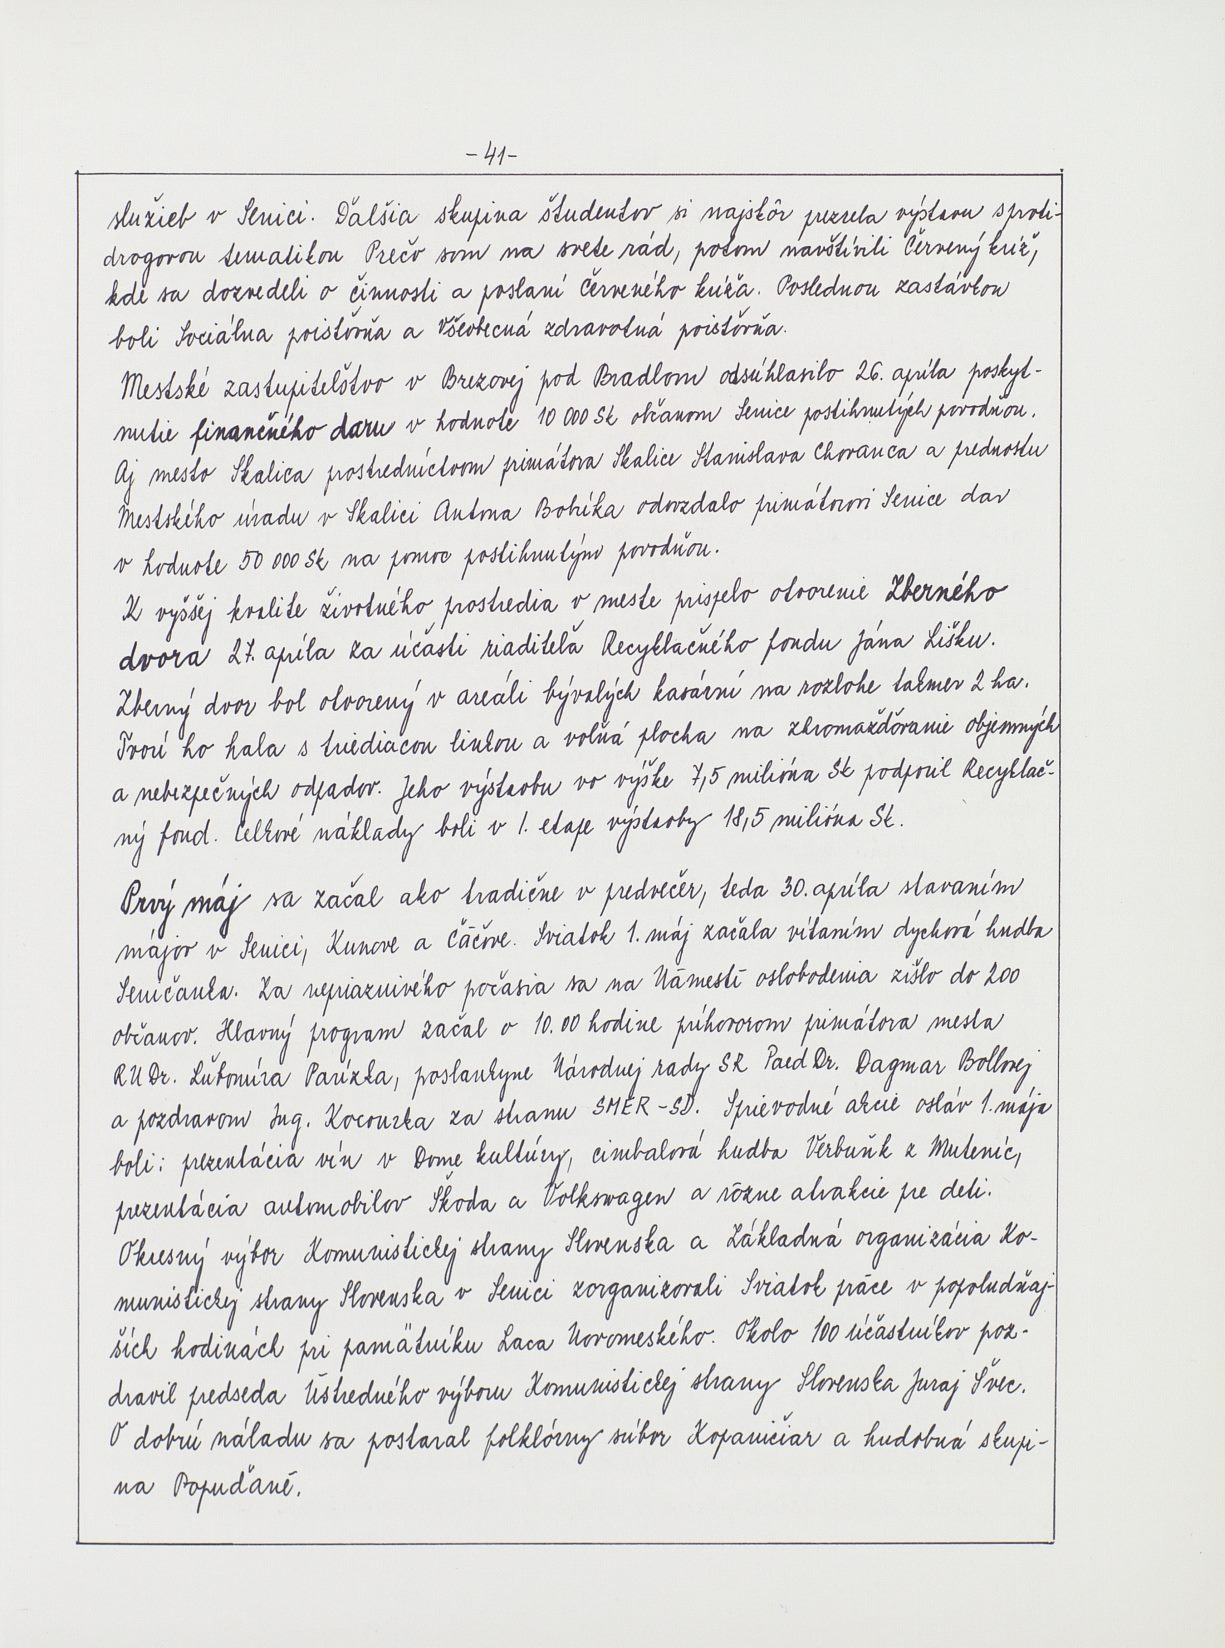 -41-
služieb v Senici. Ďalšia skupina študentov si najskôr prezrela výstavu s proti-
drogovou tematikou Prečo som na svete rád, potom navštívili Červený kríž,
kde sa dozvedeli o činnosti a poslaní Červeného kríža. Poslednou zastávkou
boli Sociálna poisťovňa a Všeobecná zdravotná poisťovňa.
Mestské zastupiteľstvo v Brezovej pod Bradlom odsúhlasilo 26. apríla poskyt-
nutie finančného daru v hodnote 10 000 Sk občanom Senice postihnutých povodňou.
Aj mesto Skalica prostredníctvom primátora Skalice Stanislava Chovanca a prednostu
Mestského úradu v Skalici Antona Bobríka odovzdalo primátorovi Senice dar
v hodnote 50 000 Sk na pomoc postihnutým povodňou.
K vyššej kvalite životného prostredia v meste prispelo otvorenie Zberného
dvora 27. apríla za účasti riaditeľa Recyklačného fondu Jána Lišku.
Zberný dvor bol otvorený v areáli bývalých kasární na rozlohe takmer 2 ha.
Tvorí ho hala s triediacou linkou a voľná plocha na zhromažďovanie objemných
a nebezpečných odpadov. Jeho výstavbu vo výške 7,5 milióna Sk podporil Recyklač-
ný fond. Celkové náklady boli v 1. etape výstavby 18,5 milióna Sk.
Prvý máj sa začal ako tradične v predvečer, teda 30. apríla stavaním
májov v Senici, Kunove a Čáčove. Sviatok 1. máj začala vítaním dychová hudba
Seničanka. Za nepriaznivého počasia sa na Námestí oslobodenia zišlo do 200
občanov. Hlavný program začal o 10.00 hodine príhovorom primátora mesta
RNDr. Ľubomíra Parízka, poslankyne Národnej rady SR PaedDr. Dagmar Bollovej
a pozdravom Ing. Kocourka za stranu SMER-SD. Sprievodné akcie osláv 1. mája
boli: prezentácia vín v Dome kultúry, cimbalová hudba Verbuňk z Mutenic,
prezentácia automobilov Škoda a Volkswagen a rôzne atrakcie pre deti.
Okresný výbor Komunistickej strany Slovenska a Základná organizácia Ko-
munistickej strany Slovenska v Senici zorganizovali Sviatok práce v popoludňaj-
ších hodinách pri pamätníku Laca Novomeského. Okolo 100 účastníkov poz-
dravil predseda Ústredného výboru Komunistickej strany Slovenska Juraj Švec.
O dobrú náladu sa postaral folklórny súbor Kopaničiar a hudobná skupi-
na Popuďané.